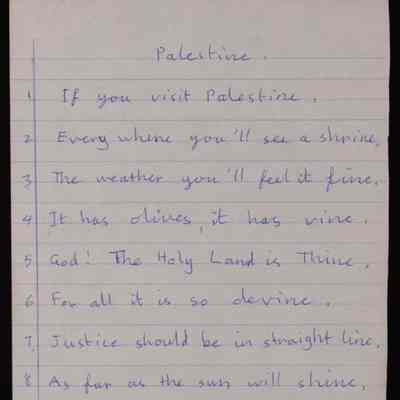 Palestine.
1 If you visit Palestine.
2 Every where you'll see a shrine.
3 The weather you'll feel it fine.
4 It has olives, it has vine.
5 God! The Holy Land is Thine.
6 For all it is so devine.
7. Justice should be in straight line.
8 As far as the sun will shine.